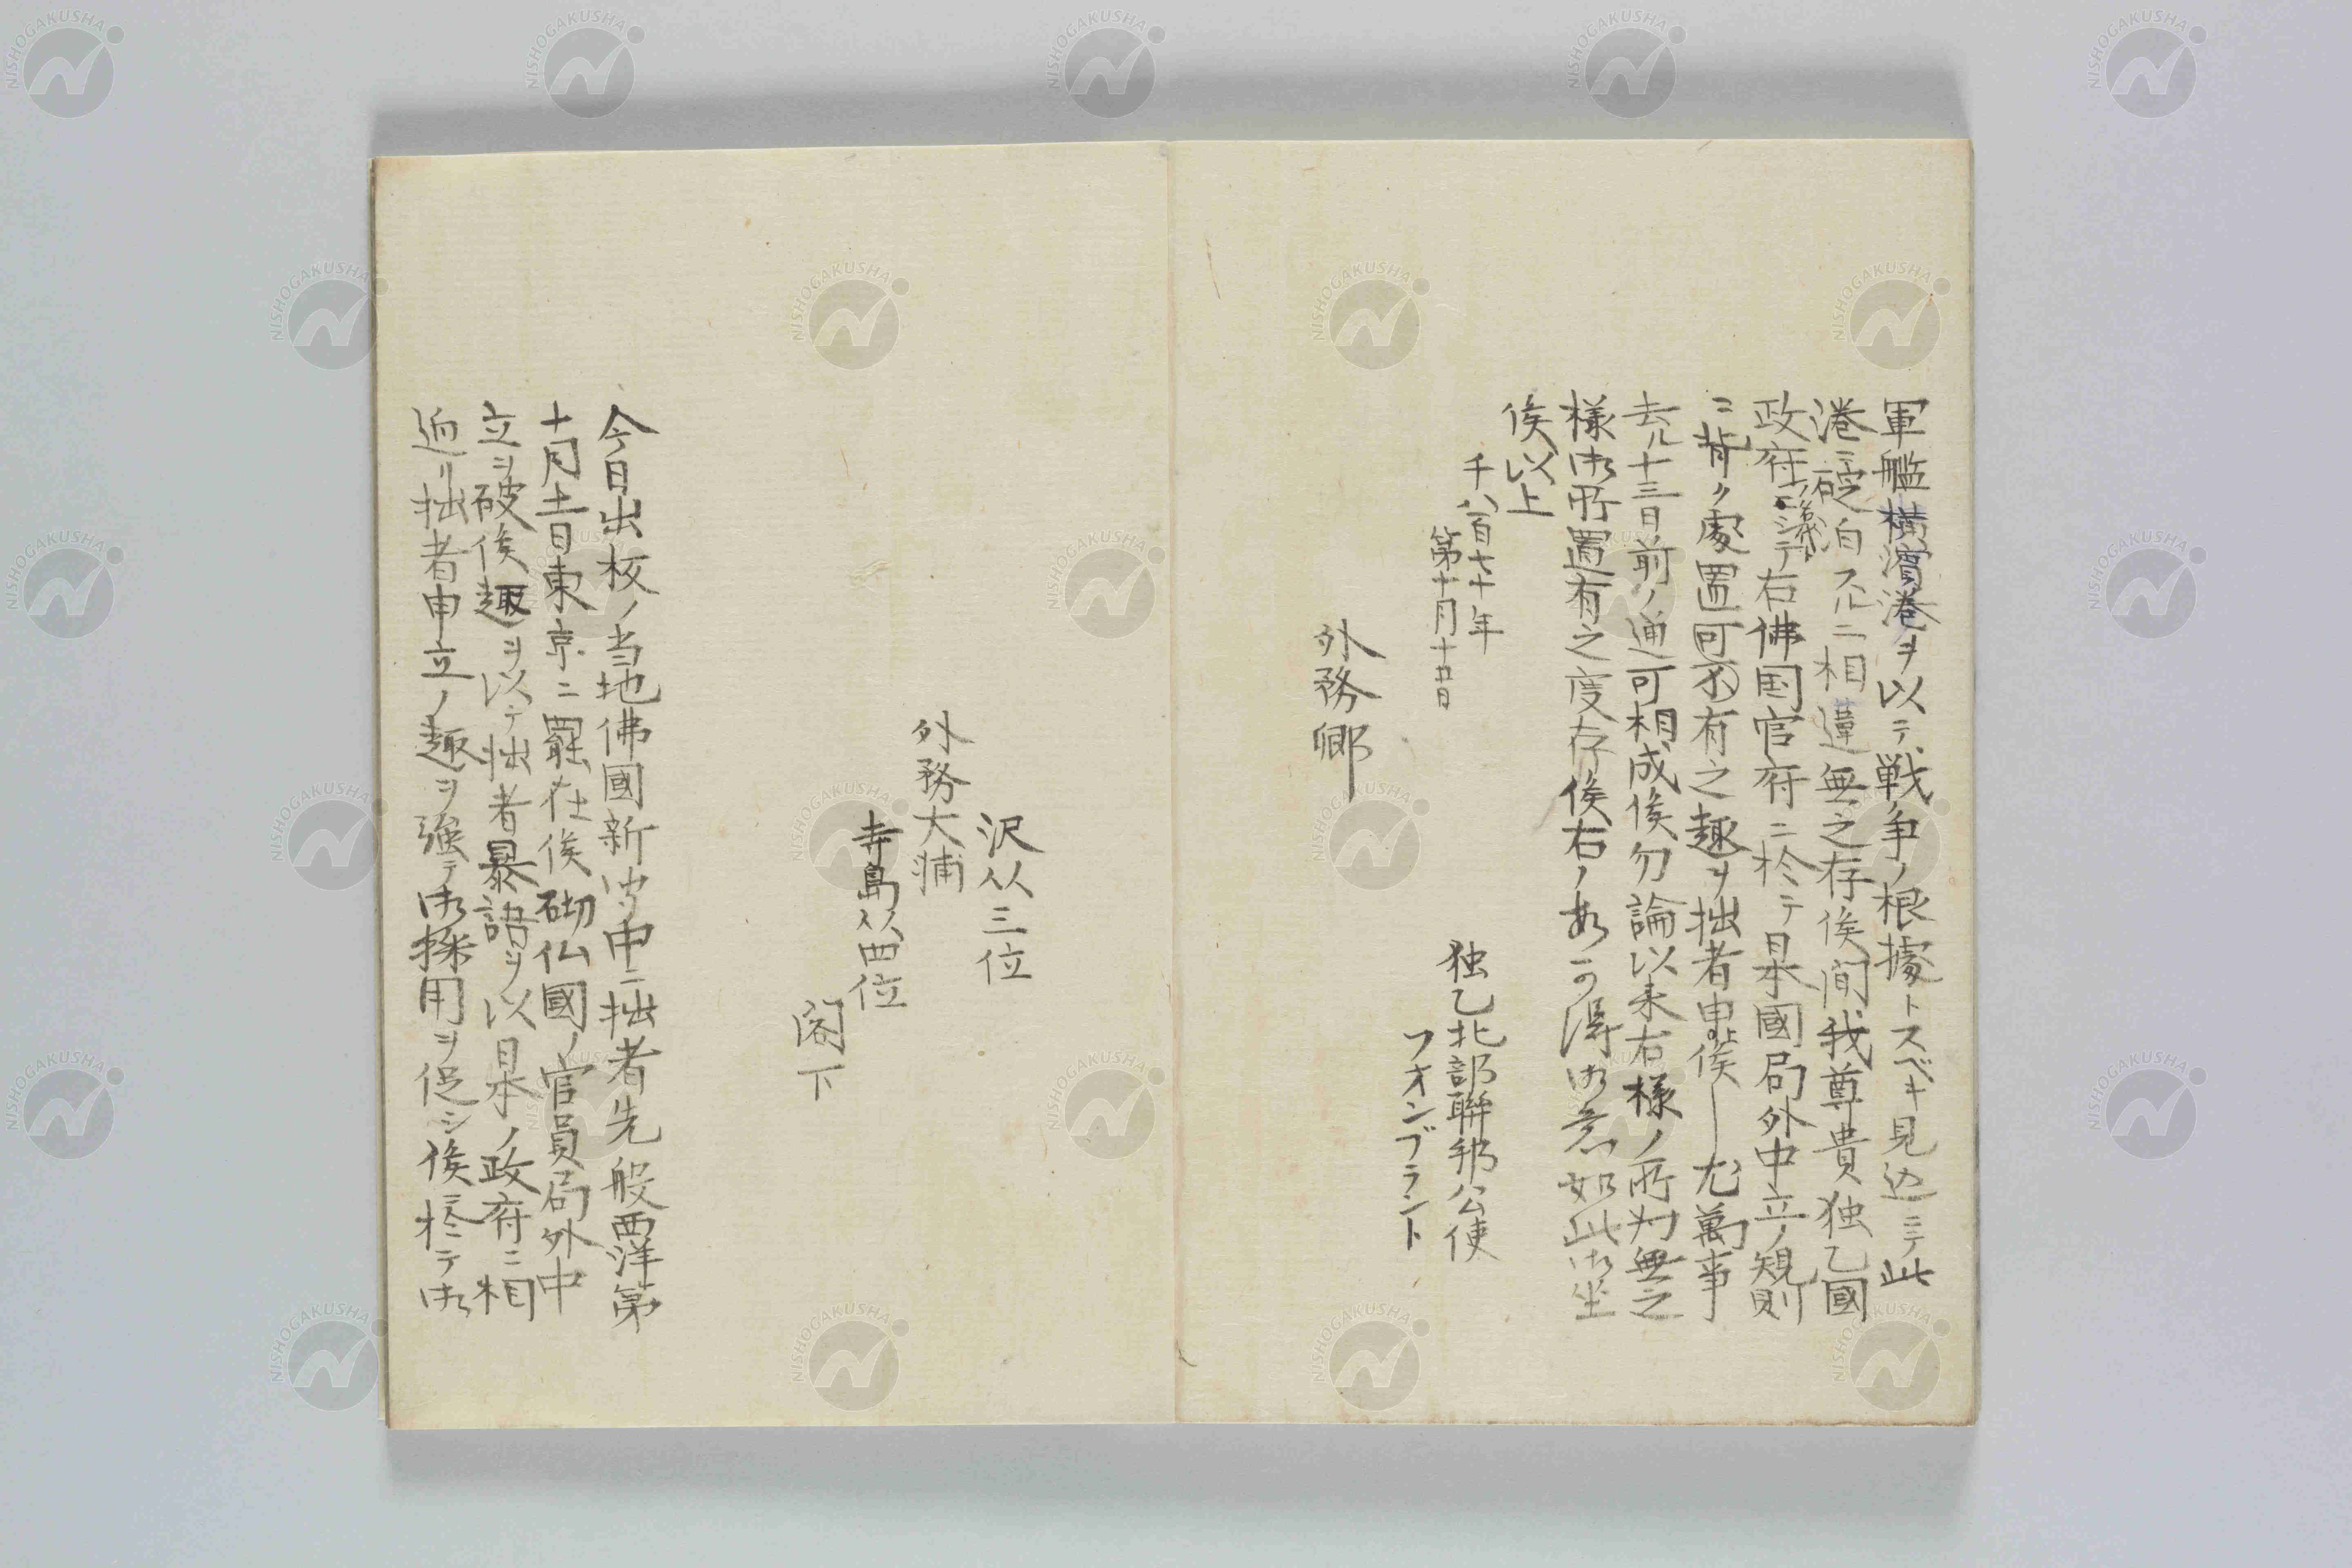 軍艦横濱港ヲ以テ戦争ノ根據トスベキ見込ニテ此
港ニ碇泊スルニ相違無之存候間我尊貴独乙國
政府ニ テ右佛国官府ニ於テ日本國局外中立ノ規則
ニ背ク處置可有之趣ヲ拙者申上候 尤萬事
去ル十三日前ノ通可相成候勿論以来右様ノ所為無之
様御所置有之度存候右ノ為可得御意如此御坐
候以上
千八百七十年
第十月十廿日
独乙北部聯邦公使
フオンブラント
外務卿
沢従三位
外務大輔
寺島従四位
閣下
今日出板ノ当地佛國新聞中ニ拙者先般西洋第
十月十一日東京ニ罷在候砌仏國ノ官員局外中
立ヲ破候趣ヲ以テ拙者暴語ヲ以日本ノ政府ニ相
迫リ拙者申立ノ趣ヲ強テ御採用ヲ促シ候ニ於テ御
NISHOGAKUSHA